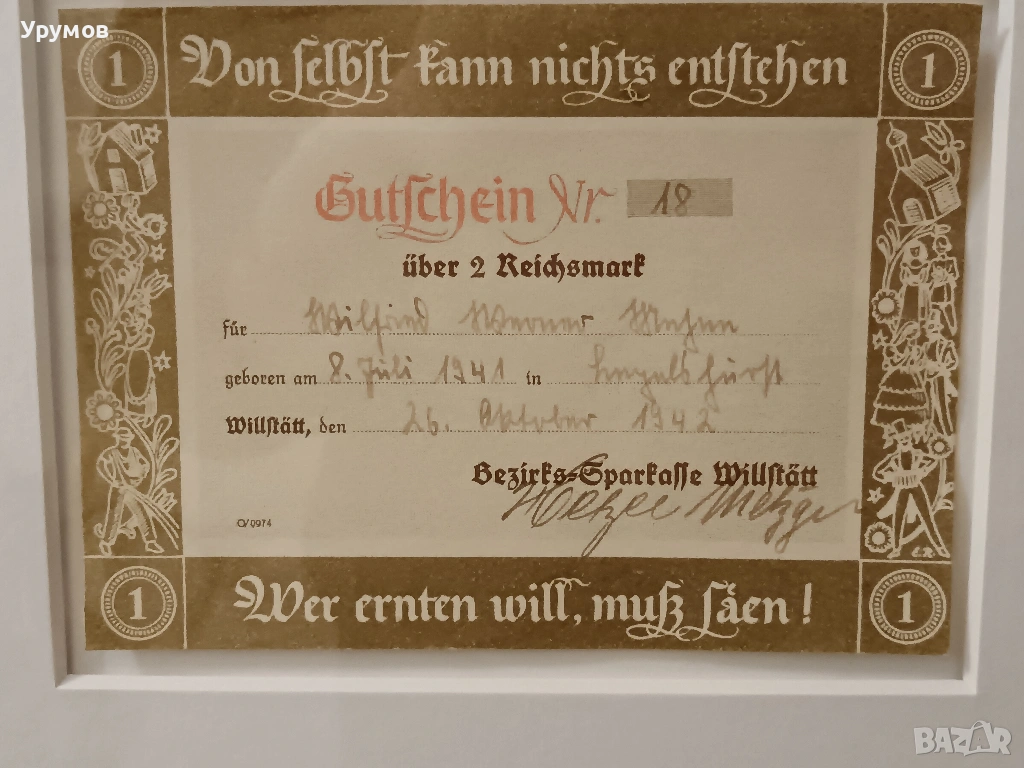 Урумов
1 Von selbst kann nichts entstehen 1
Gutschein Nr. 18
über 2 Reichsmark
für Wilfried Werner
geboren am 8. Juli 1941 in Legelshurst
Willstätt, den 26. Oktober 1942
Bezirks-Sparkasse Willstätt
Metzger
CV 0974
E.R.
1 Wer ernten will, muß säen! 1
BAZAR